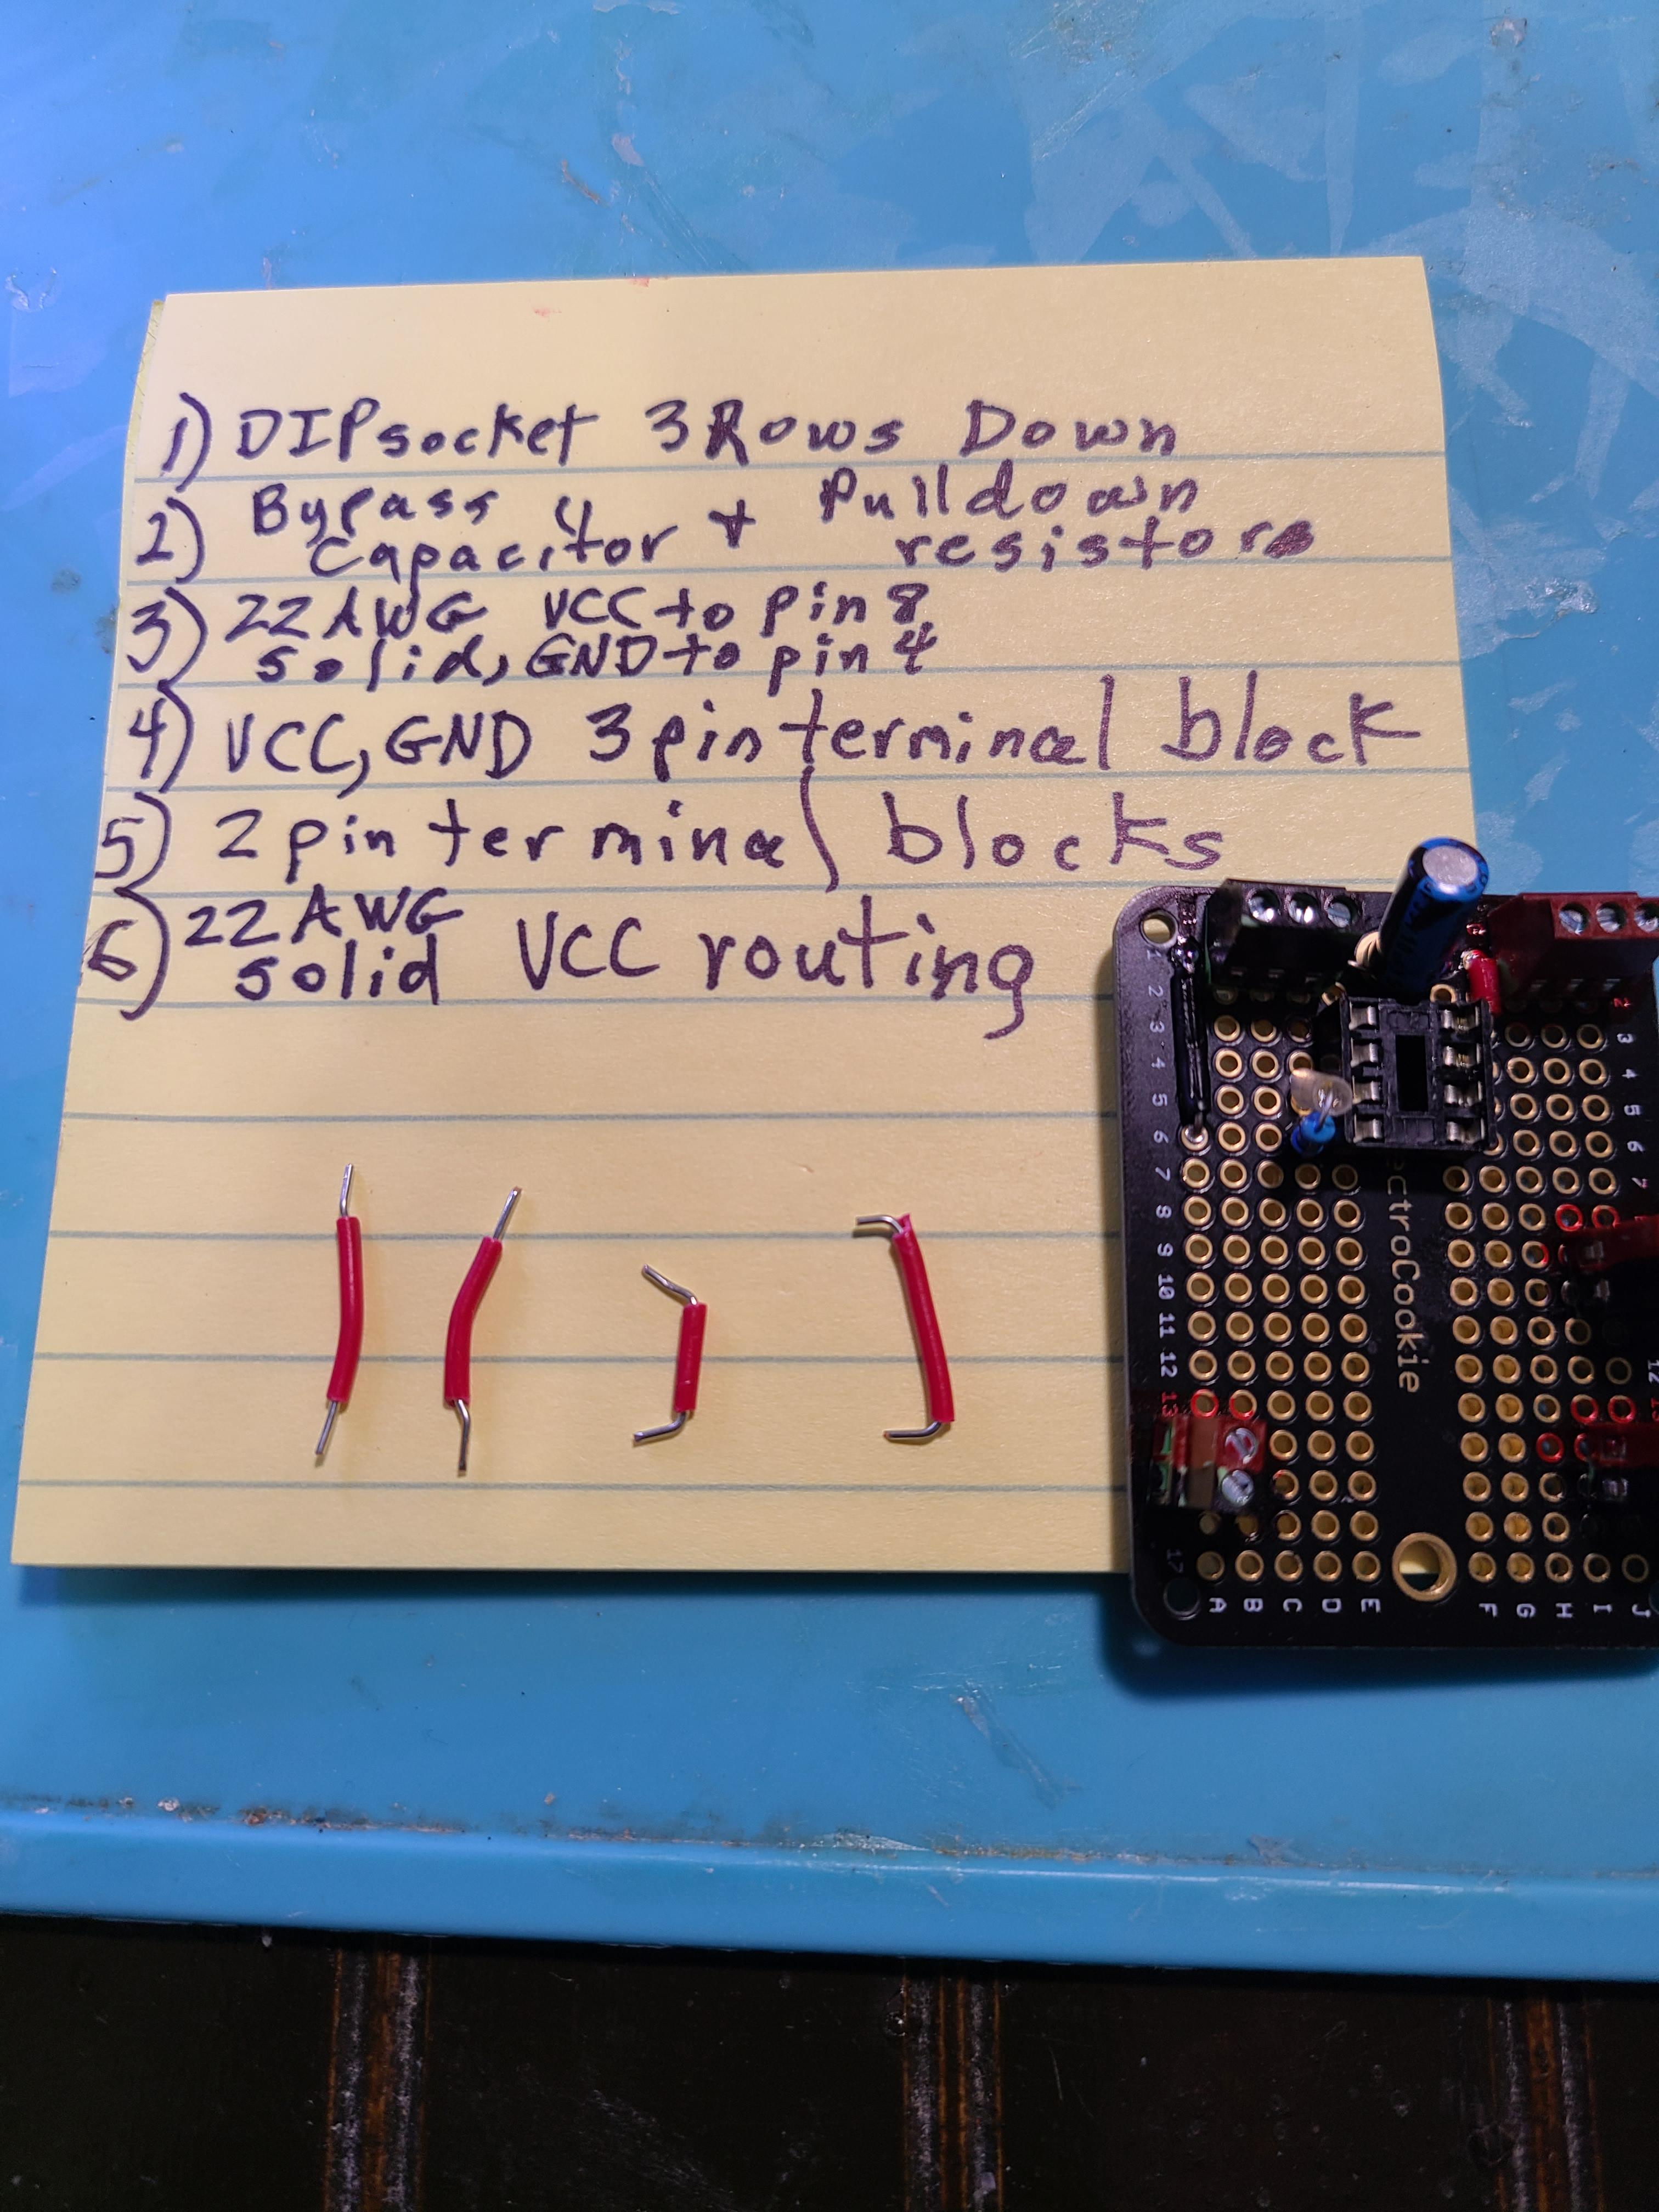 1) DIP socket 3 Rows Down
2) Bypass Capacitor & Pulldown resistors
3) 22 AWG solid, VCC to pin 8
GND to pin 4
4) VCC, GND 3 pin terminal block
5) 2 pin terminal blocks
6) 22 AWG solid VCC routing
1
2
3
4
5
6
7
8
9
10
11
12
13
17
A B C D E
ctroCookie
2
3
4
5
6
7
12
F G H I J